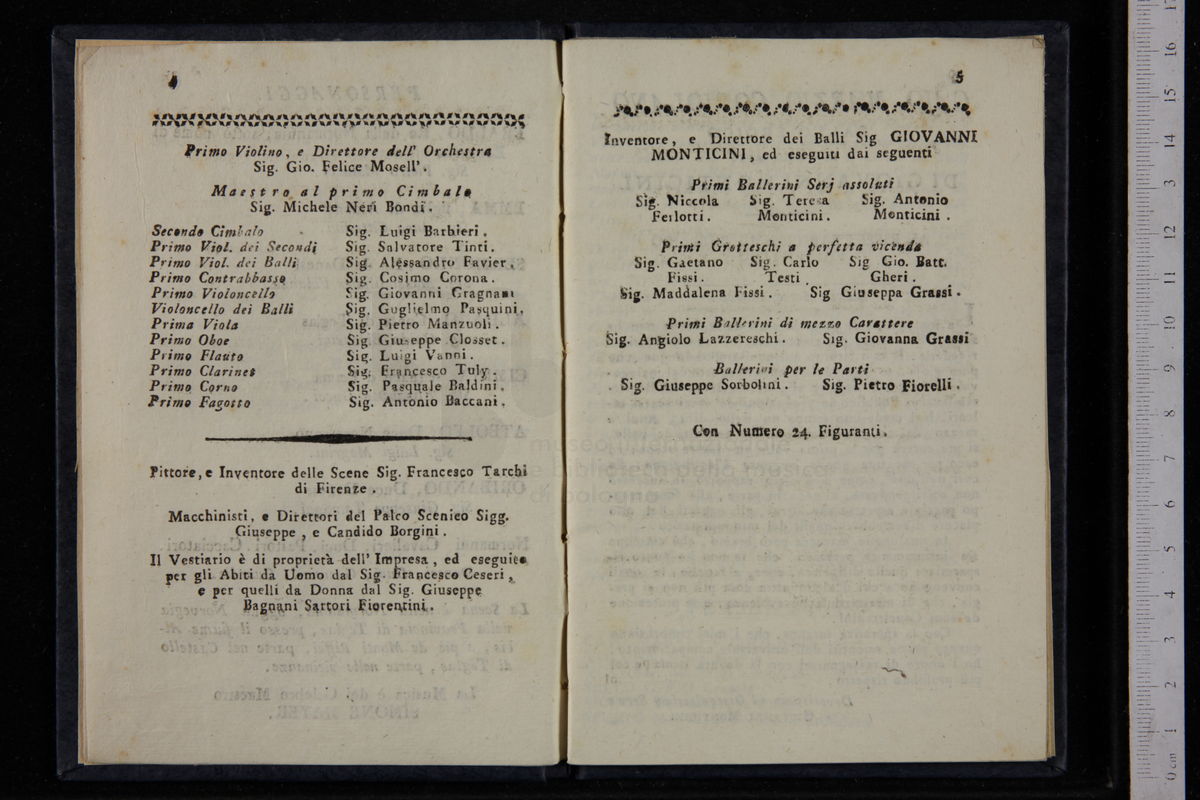 4
Primo Violino, e Direttore dell' Orchestra
Sig. Gio. Felice Mosell'.
Maestro al primo Cimbalo
Sig. Michele Neri Bondi.
Secondo Cimbalo Sig. Luigi Barbieri.
Primo Viol. dei Secondi Sig. Salvatore Tinti.
Primo Viol. dei Balli Sig. Alessandro Favier.
Primo Contrabbasso Sig. Cosimo Corona.
Primo Violoncello Sig. Giovanni Gragnani
Violoncello dei Balli Sig. Guglielmo Pasquini.
Prima Viola Sig. Pietro Manzuoli.
Primo Oboe Sig. Giuseppe Closset.
Primo Flauto Sig. Luigi Vanni.
Primo Clarinet Sig. Francesco Tuly.
Primo Corno Sig. Pasquale Baldini.
Primo Fagotto Sig. Antonio Baccani.
Pittore, e Inventore delle Scene Sig. Francesco Tarchi
di Firenze.
Macchinisti, e Direttori del Palco Scenico Sigg.
Giuseppe, e Candido Borgini.
Il Vestiario è di proprietà dell' Impresa, ed eseguito
per gli Abiti da Uomo dal Sig. Francesco Ceseri,
e per quelli da Donna dal Sig. Giuseppe
Bagnani Sartori Fiorentini.
5
Inventore, e Direttore dei Balli Sig GIOVANNI
MONTICINI, ed eseguiti dai seguenti
Primi Ballerini Serj assoluti
Sig. Niccola Sig. Teresa Sig. Antonio
Ferlotti. Monticini. Monticini.
Primi Grotteschi a perfetta vicenda
Sig. Gaetano Sig. Carlo Sig Gio. Batt.
Fissi. Testi. Gheri.
Sig. Maddalena Fissi. Sig Giuseppa Grassi.
Primi Ballerini di mezzo Carattere
Sig. Angiolo Lazzereschi. Sig. Giovanna Grassi
Ballerini per le Parti
Sig. Giuseppe Sorbolini. Sig. Pietro Fiorelli.
Con Numero 24. Figuranti.
museo internazionale
e biblioteca della musica
di bologna
0 cm 1 2 3 4 5 6 7 8 9 10 11 12 13 14 15 16 17